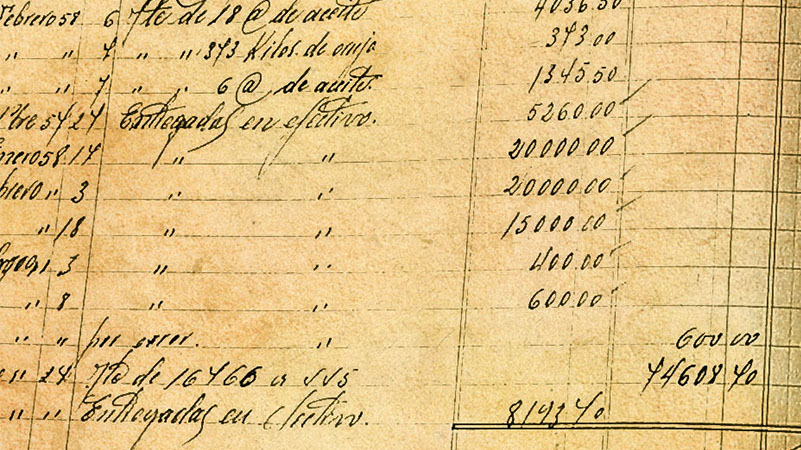 Febrero 58 6 Ite de 18 @ de aceite 4036.50
" " 7 " " 373 Kilos de orujo 373.00
" " 7 " " 6 @ de aceite. 1345.50
24 Entregadas en efectivo. 5260.00
Enero 58. 14 " " 20000.00
Febrero " 3 " " 20000.00
" 18 " " 15000.00
3 " " 400.00
" 8 " " 600.00
" " por error. " 600 00
24 de 16466 74608 70
" " Entregadas en efectivo. 8193 70